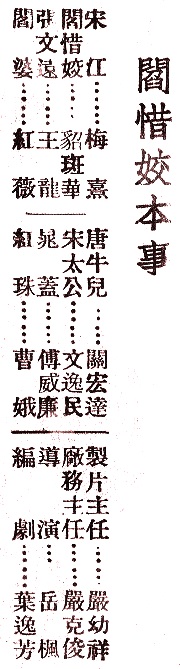 閻惜姣本事
宋江⋯⋯梅熹
閻惜姣⋯⋯貂斑華
張文遠⋯⋯王龍
閻婆⋯⋯紅薇
唐牛兒⋯⋯關宏達
宋太公⋯⋯文逸民
晁蓋⋯⋯傅威廉
紅珠⋯⋯曹娥
製片主任⋯⋯嚴幼祥
廠務主任⋯⋯嚴克俊
導演⋯⋯岳楓
編劇⋯⋯葉逸芳